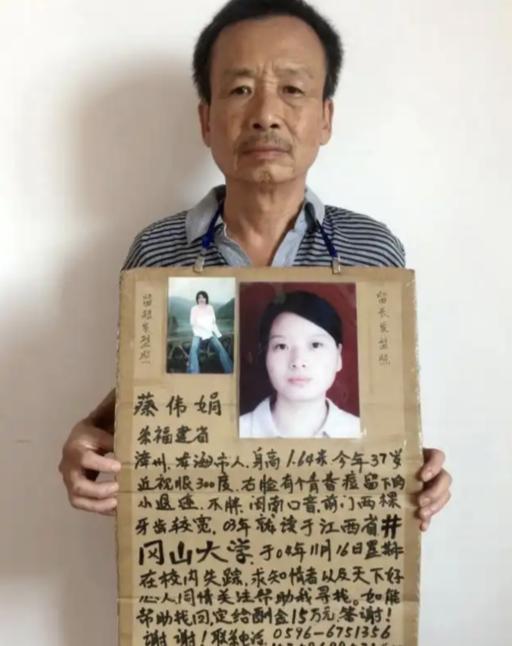 留短发型照
留长发型照
蔡伟娟
系福建省
漳州.龙海市人.身高1.64米.今年37岁
近视眼300度.右脸有个青春痘留下的
小.不胖.闽南口音.前门两棵
牙齿较宽.03年就读于江西省井
冈山大学于04年11月16日星期
在校内失踪.求知情者以及天下好
心人同情关注帮助我寻找.如能
帮助找回.定给酬金15万元.答谢!
谢谢!联系电话 0596-6751356